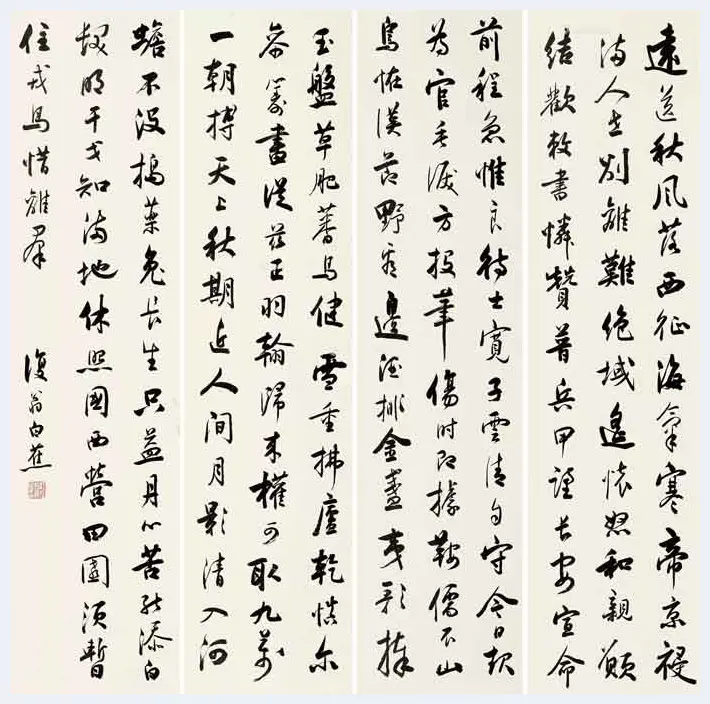 遠送秋風落西征海氣寒帝京祲
滿人世別離難絕域遙懷怒和親願
結歡敕書憐贊普兵甲望長安宣命
前程急惟良待士寬子雲清自守今日起
為官垂淚方投筆傷時即據鞍儒衣山
鳥恠漢節野看邊酒排金盞夷歌捧
玉盤草肥蕃馬健雪重拂廬乾慎爾
參籌畫從茲正羽翰歸來權可取九萬
一朝摶天上秋期近人間月影清入河
蟾不沒搗藥兔長生只益丹心苦能添白
髮明干戈知滿地休照國西營田園須暫
住戎馬惜離群
復翁白蕉